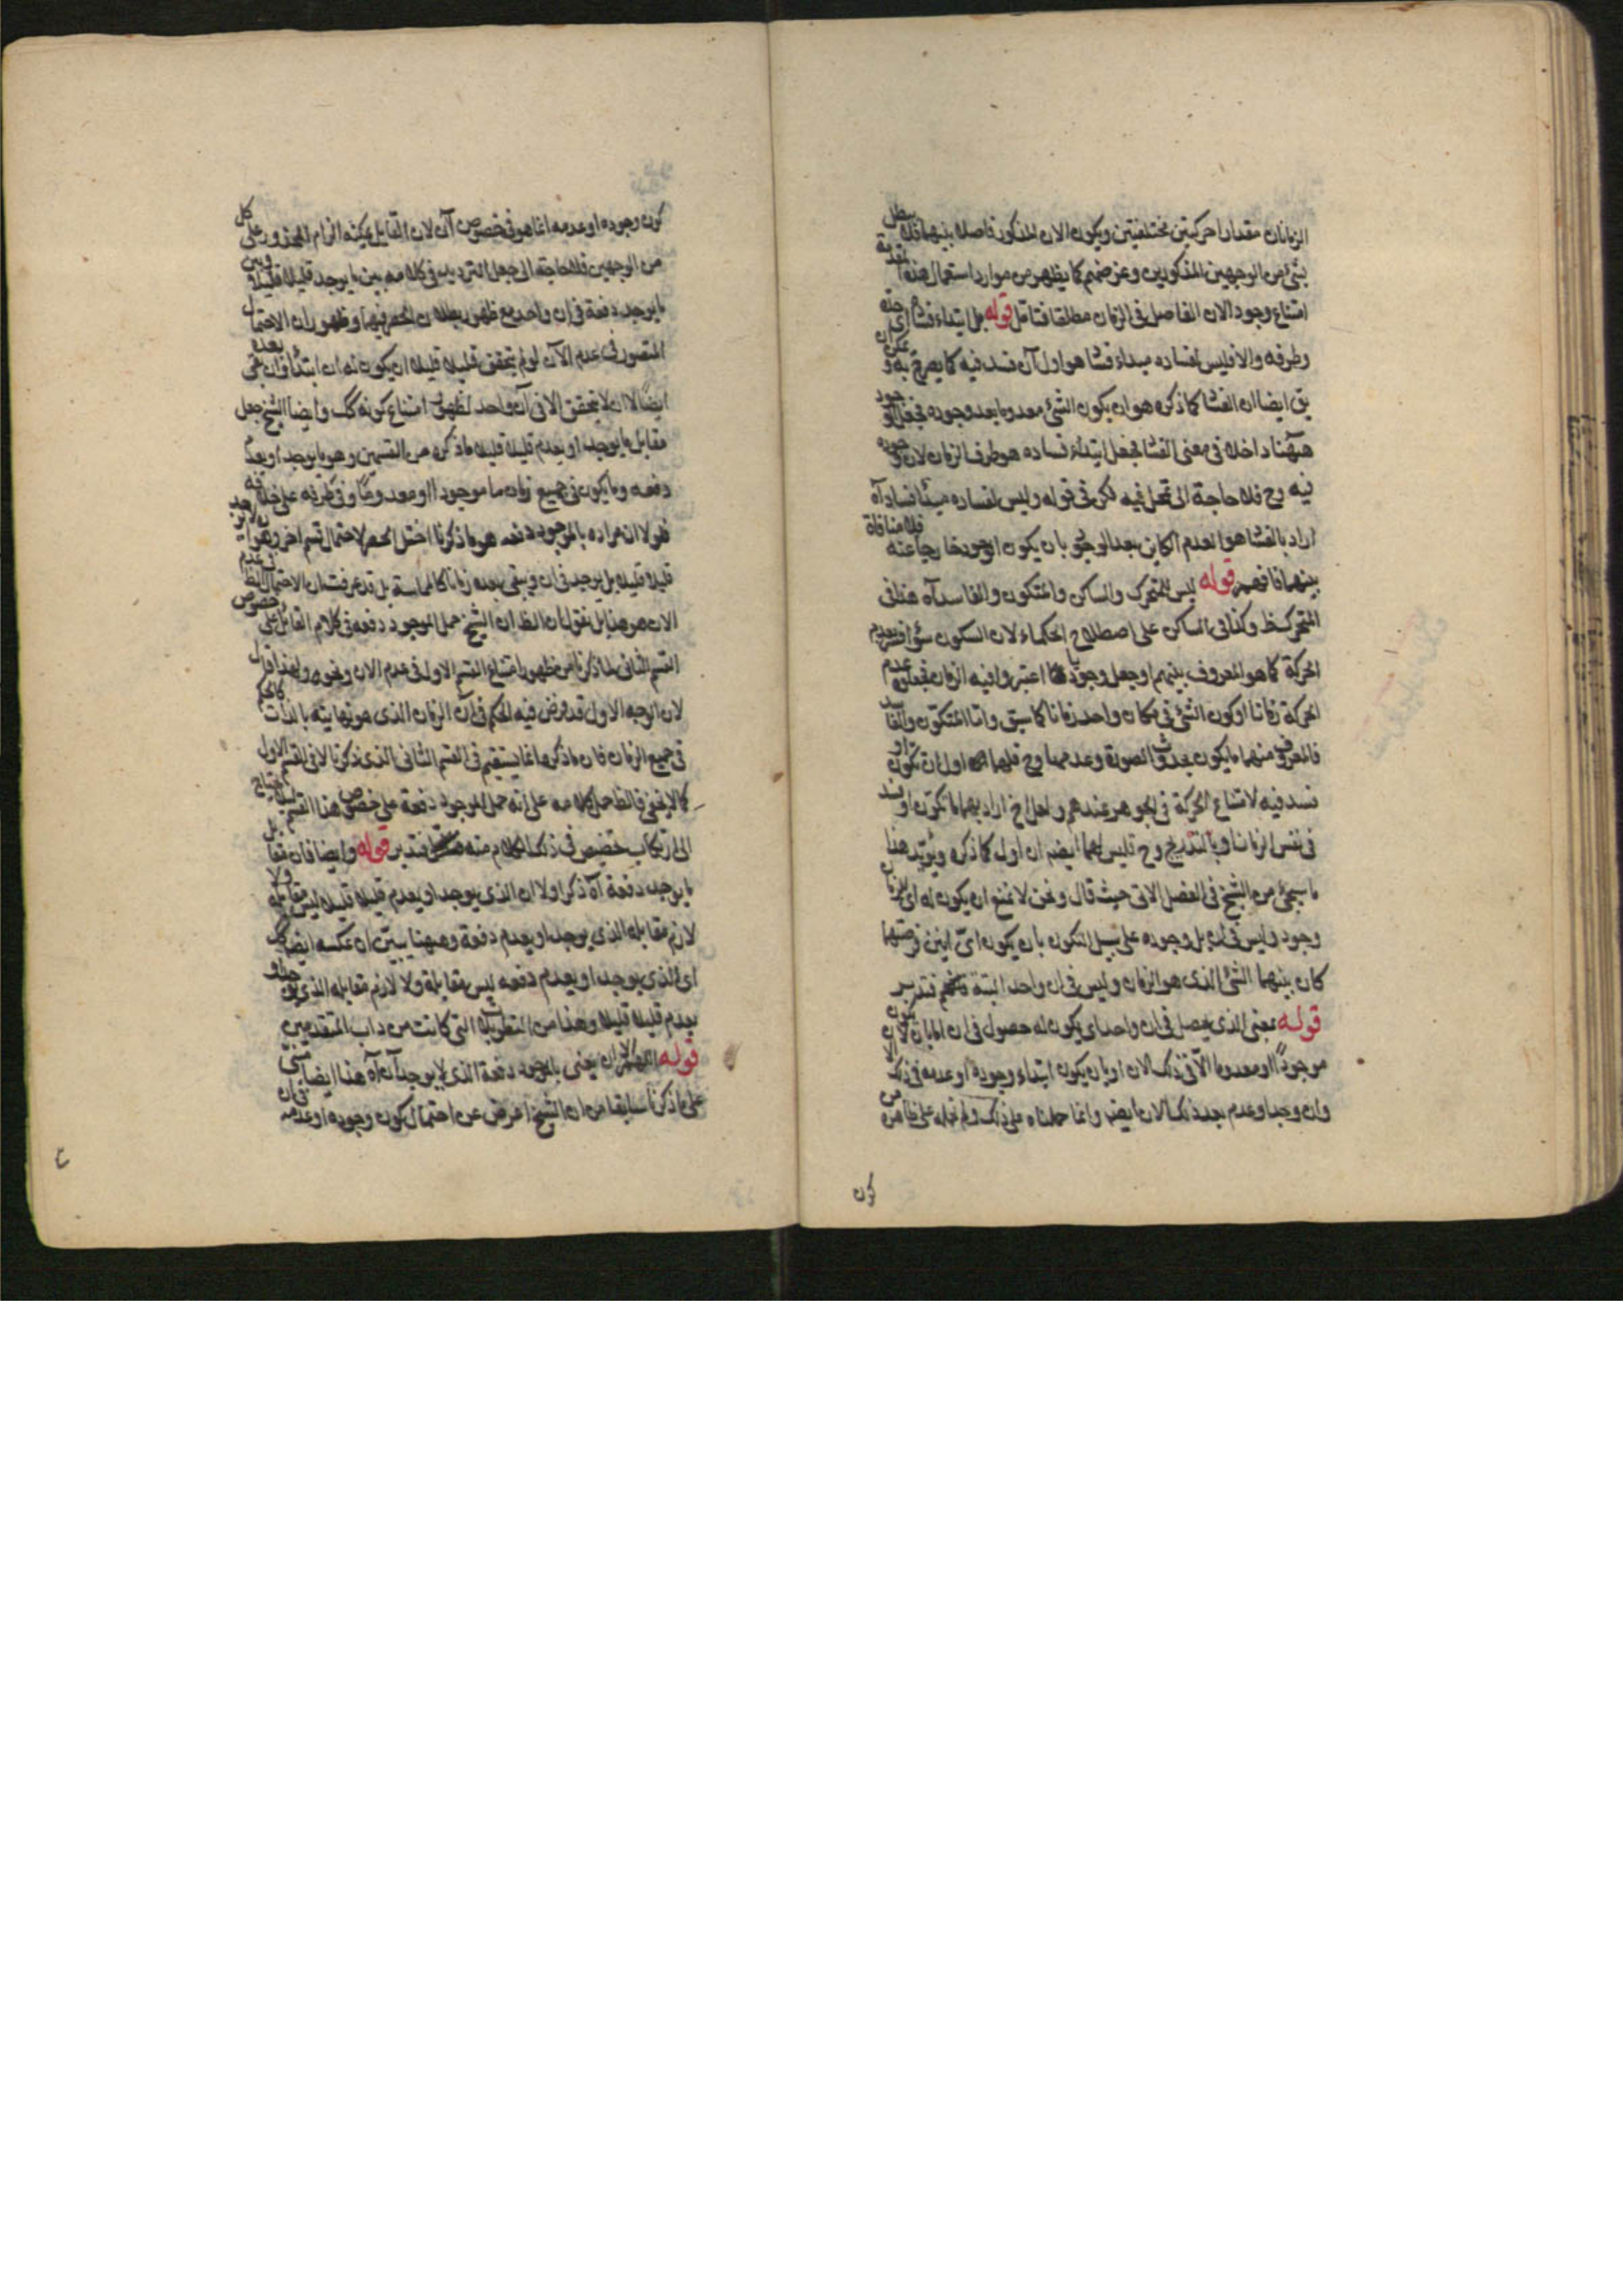 الزمانان مقدارا حركتين مختلفتين ويكون الان المذكور فاصلا بينهما فلا يبطل
بشئ من الوجهين المذكورين وغرضهم كما يظهر من موارد استعمال هذه المقدمة
امتناع وجود الان الفاصل فى الزمان مطلقا فتامل قوله بل ابتداء فسا اى حده
وطرفه والا فليس لفساده مبداء فسا هو اول آن فسد فيه كما يصرح به و يمكن ان
يق ايضا ان الفسا كما ذكره هو ان يكون الشئ معدوما بعد وجوده فجعل الوجود
ههنا داخلا فى معنى الفسا فجعل ابتداء فساده هو طرف الزمان لان وجوده
فيه وح فلا حاجة الى تمحل فيه لكن فى قوله وليس لفساده مبدأ فساد آه
اراد بالفسا هو العدم الكاين بعد الوجود بان يكون الوجود خارجا عنه فلا منافاة
بينهما فافهم قوله ليس للمتحرك والساكن والمتكون والفاسد آه هذا فى
المتحرك ظ وكذا فى الساكن على اصطلاح الحكماء لان السكون سواء فسر بعدم
الحركة كما هو المعروف بينهم او جعل وجوديا اعتبروا فيه الزمان فجعلوه عدم
الحركة زمانا او كون الشئ فى مكان واحد زمانا كما سبق واما المتكون والفاسد
فالمعروف منهما ما يكون بحدوث الصورة وعدمها وح فلهما اول ان تكون او
فسد فيه لامتناع الحركة فى الجوهر عندهم ولعل الشيخ اراد بهما ما تكون او فسد
فى نفس الزمان او بالتدريج وح فليس لهما ايضا ان اول كما ذكره ويؤيد هذا
ما سيجئ من الشيخ فى الفصل الاتى حيث قال ونحن لا نمنع ان يكون له اى للزمان
وجود وليس فى ان بل وجوده على سبيل التكون بان يكون اى آنين فرضتهما
كان بينهما الشئ الذى هو الزمان وليس فى ان واحد البتة فتدبر
قوله بمعنى الذى يحصل فى ان واحد اى يكون له حصول فى ان اما بان لا يكون
موجودا او معدوما الا فى ذلك الان او بان يكون ابتداء وجوده او عدمه فى ذلك الان
وان وجد او عدم بعد ذلك الان ايضا وانما حملناه على ذلك ولم نحمله على ظاهره من
كون
كون وجوده او عدمه انما هو فى خصوص آن لان القايل يمكنه الزام المحذور على كل
من الوجهين فلا حاجة الى جعل الترديد فى كلامه بين ما يوجد قليلا قليلا وبين
ما يوجد دفعة فى ان واحد مع ظهور بطلان الحصر فيهما وظهور ان الاحتمال
المتصور فى عدم الآن لو لم يتحقق قليلا قليلا ان يكون له ان ابتداء وان بقى بعده
ايضا لا ان لا يتحقق الا فى آن واحد لظهور امتناع كونه كك وايضا الشيخ جعل
مقابل ما يوجد او يعدم قليلا قليلا ما ذكره من القسمين وهو ما يوجد او يعدم
دفعه وما يكون فى جميع زمان ما موجودا او معدوما وفى طرفه على خلافه
فلولا ان مراده بالموجود دفعه هو ما ذكرنا اختل الحصر لاحتمال قسم اخر وهو ان لا يوجد
قليلا قليلا بل يوجد فى ان ويبقى بعده زمانا كالمماسة بل قد عرفت ان الاحتمال الظ فى عدم
الان هو هذا بل نقول ان الظ ان الشيخ حمل الموجود دفعه فى كلام القايل على خصوص
القسم الثانى لما ذكرنا من ظهور امتناع القسم الاول فى عدم الان ونحوه ولهذا قال
لان الوجه الاول قد فرض فيه الحكم فى آن الزمان الذى هو نهايته بالذات كالحكم
فى جميع الزمان فان ما ذكره انما يستقيم فى القسم الثانى الذى ذكرنا لا فى القسم الاول
كما لا يخفى فالظ حمل كلامه على انه حمل الموجود دفعة على خصوص هذا القسم لئلا يحتاج
الى ارتكاب تخصيص فى ذلك الكلام منه فتدبر قوله وايضا فان مقابل
ما يوجد دفعة آه ذكر اولا ان الذى يوجد او يعدم قليلا قليلا ليس مقابله ولا
لازم مقابله الذى يوجد او يعدم دفعة وههنا يبين ان عكسه ايضا كك
اى الذى يوجد او يعدم دفعه ليس مقابله ولا لازم مقابله الذى يوجد او
يعدم قليلا قليلا وهذا من التطويلات التى كانت من داب المتقدمين
قوله اللهم الا ان يعنى بالموجود دفعة الذى لا يوجد آه هذا ايضا مبنى
على ما ذكرنا سابقا من ان الشيخ اعرض عن احتمال كون وجوده او عدمه فى ان